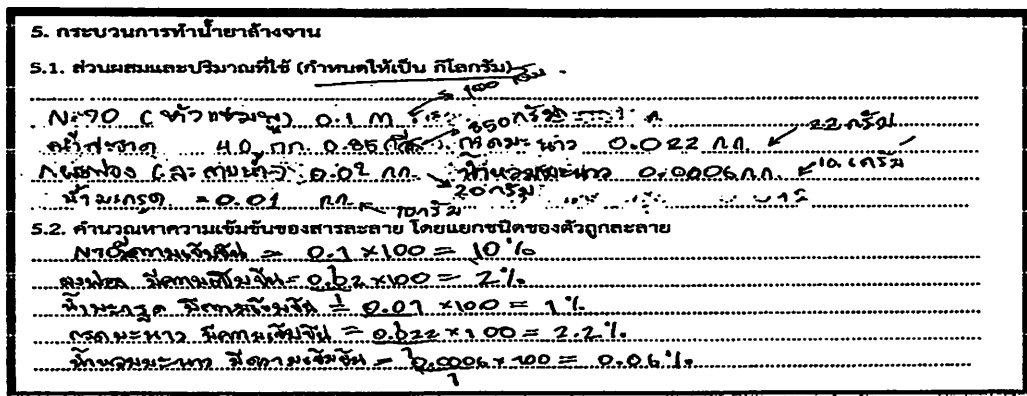 5. กระบวนการทำน้ำยาล้างจาน
5.1. ส่วนผสมและปริมาณที่ใช้ (กำหนดให้เป็น กิโลกรัม)
100 กรัม
N70 (หัวแชมพู) 0.1
850 กรัม
22 กรัม
น้ำสะอาด 0.85 กรดมะนาว 0.022 กก.
ผงฟอง (ละลายน้ำ) 0.02 กก. น้ำหอมมะนาว 0.0006 กก.
20 กรัม
น้ำมะกรูด = 0.01 กก. 10 กรัม
5.2. คำนวณหาความเข้มข้นของสารละลาย โดยแยกชนิดของตัวถูกละลาย
N70 มีความเข้มข้น = 0.1 × 100 = 10 %
ผงฟอง มีความเข้มข้น = 0.02 × 100 = 2 %
น้ำมะกรูด มีความเข้มข้น = 0.01 × 100 = 1 %
1
กรดมะนาว มีความเข้มข้น = 0.022 × 100 = 2.2 %
น้ำหอมมะนาว มีความเข้มข้น = 0.0006 × 100 = 0.06 %
1